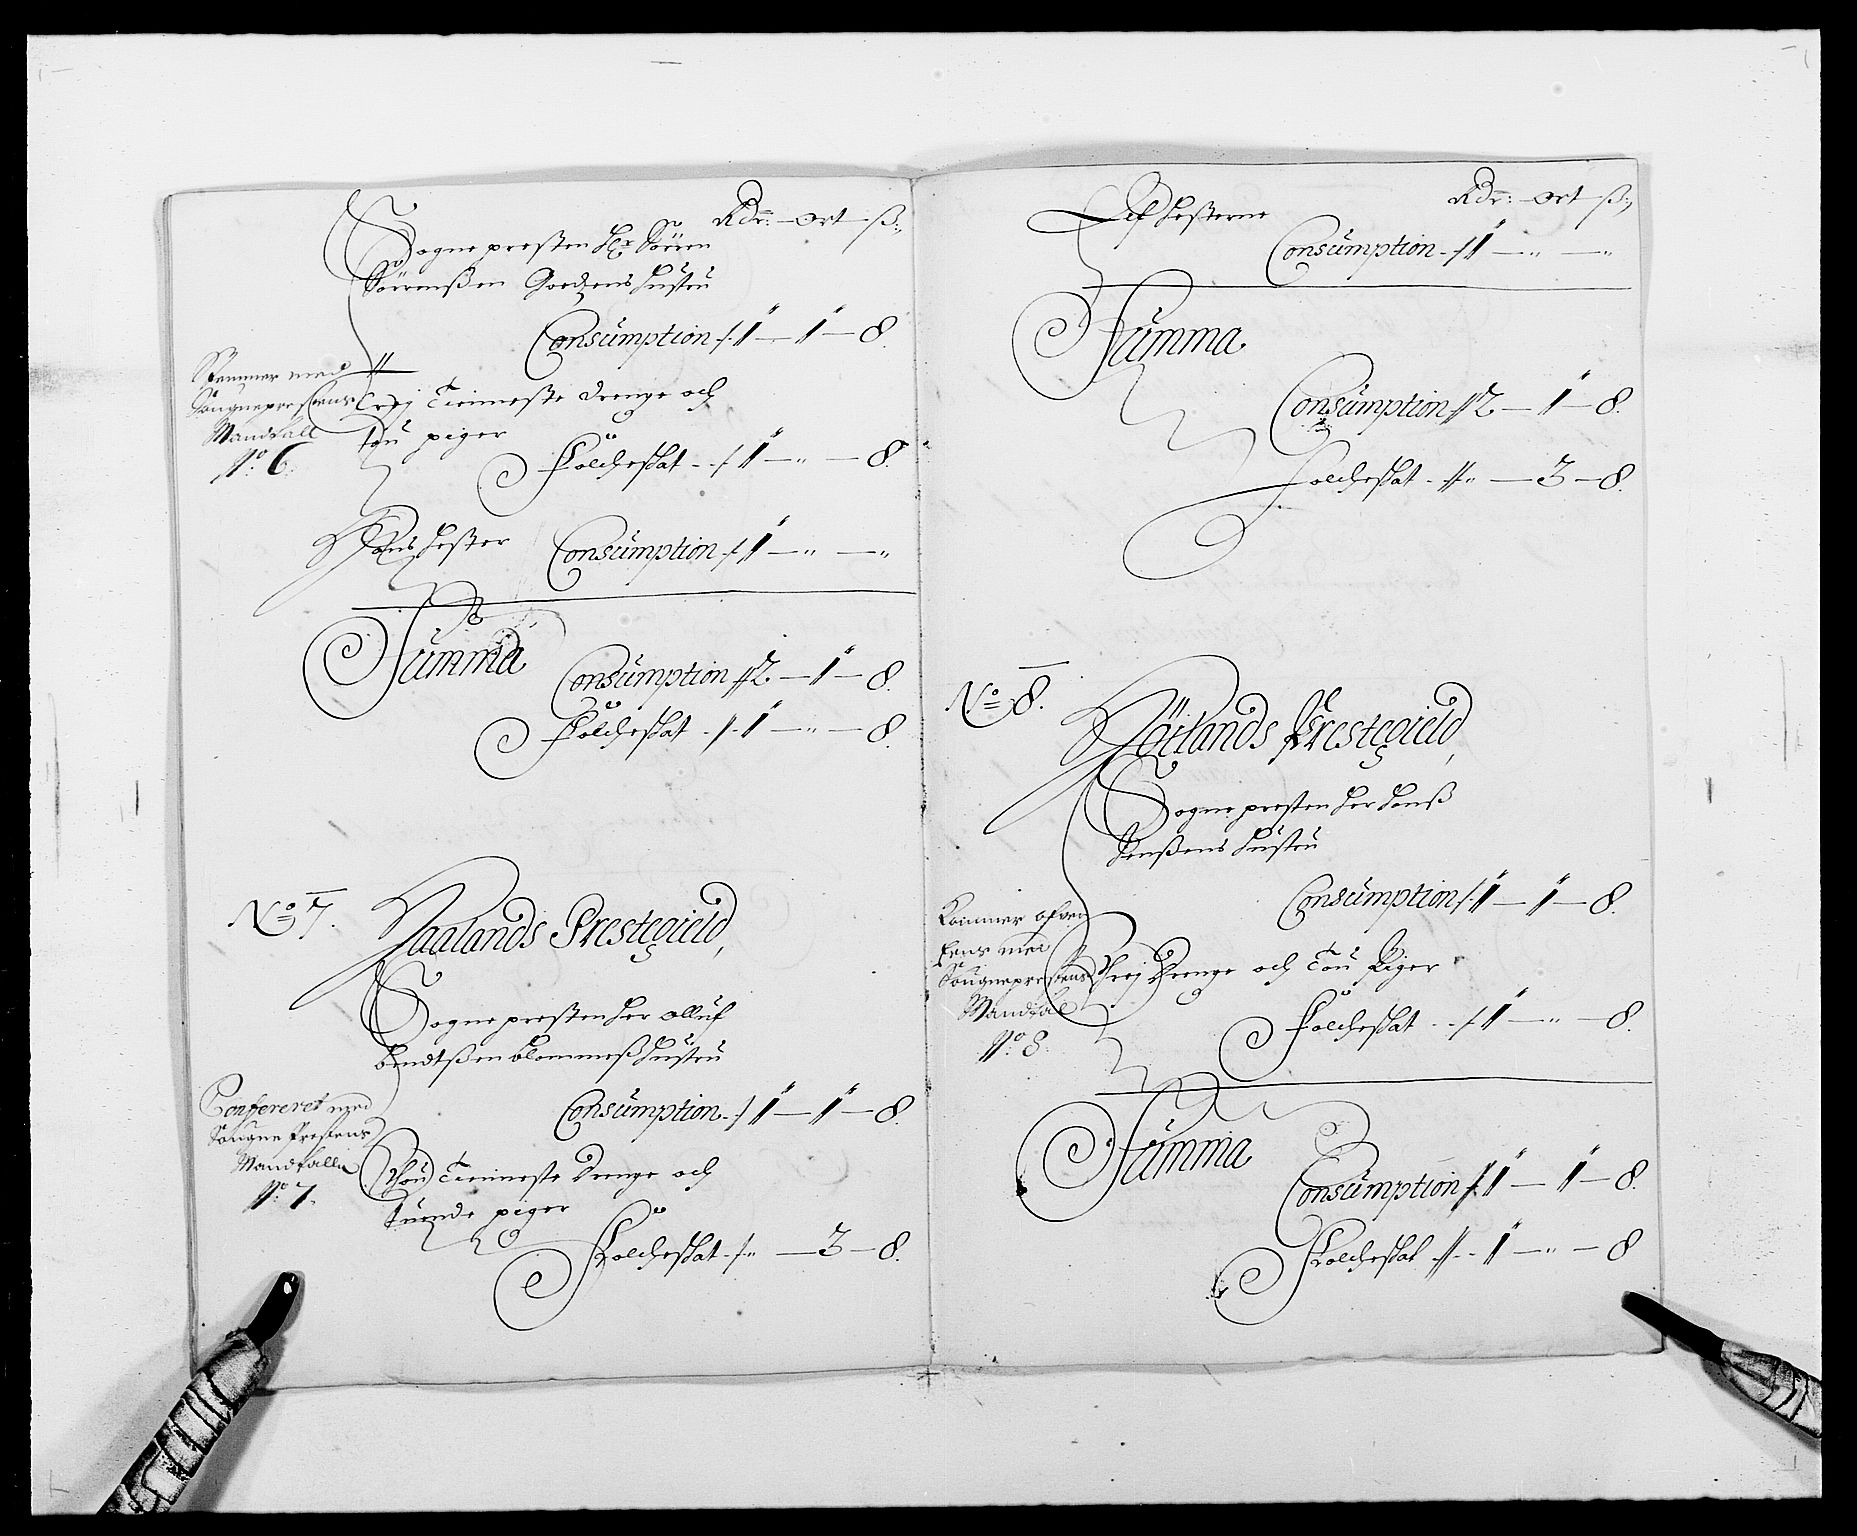 Rdr: — ort — ß:
Sogne presten Hr Sören
Sörensßen Goedzens Hustru
Consumption ./. 1 — 1 — 8.
Stemmer med
Sougneprestens
Mandtall
No: 6.
Trej Tienneste drenge och
tou piger
Folcheskat - ./. 1 — „ — 8.
Hans Hester Consumption ./. 1 — „ — „
Summa
Consumption // 2 — 1 — 8.
Folcheskat ./. 1 — „ — 8.
No 7.
Haalands Prestegield,
Sogne presten Her Olluf
bendtßen blommeß Hustru
Consumption ./. 1 — 1 — 8.
Confereret med
Sougne Prestens
Mandtalle
No: 7.
Thou Tienneste Drenge och
Tuende piger
Folcheskat ./. „ — 3 — 8.
Rdr: — ort — ß:
Af Hesterne
Consumption ./. 1 — „ — „
Summa
Consumption // 2 — 1 — 8.
Folcheskat - // „ — 3 — 8.
No 8.
Höilands Prestegield,
Sogne presten Her Hanß
Jenßens Hustru
Consumption ./. 1 — 1 — 8.
Kommer ofver
Eens med
Sougneprestens
Mandtal
No: 8.
Threj Drenge och Tou Piger
Folcheskat - ./. 1 — „ — 8.
Summa
Consumption // 1 — 1 — 8.
Folcheskat // - 1 — „ — 8